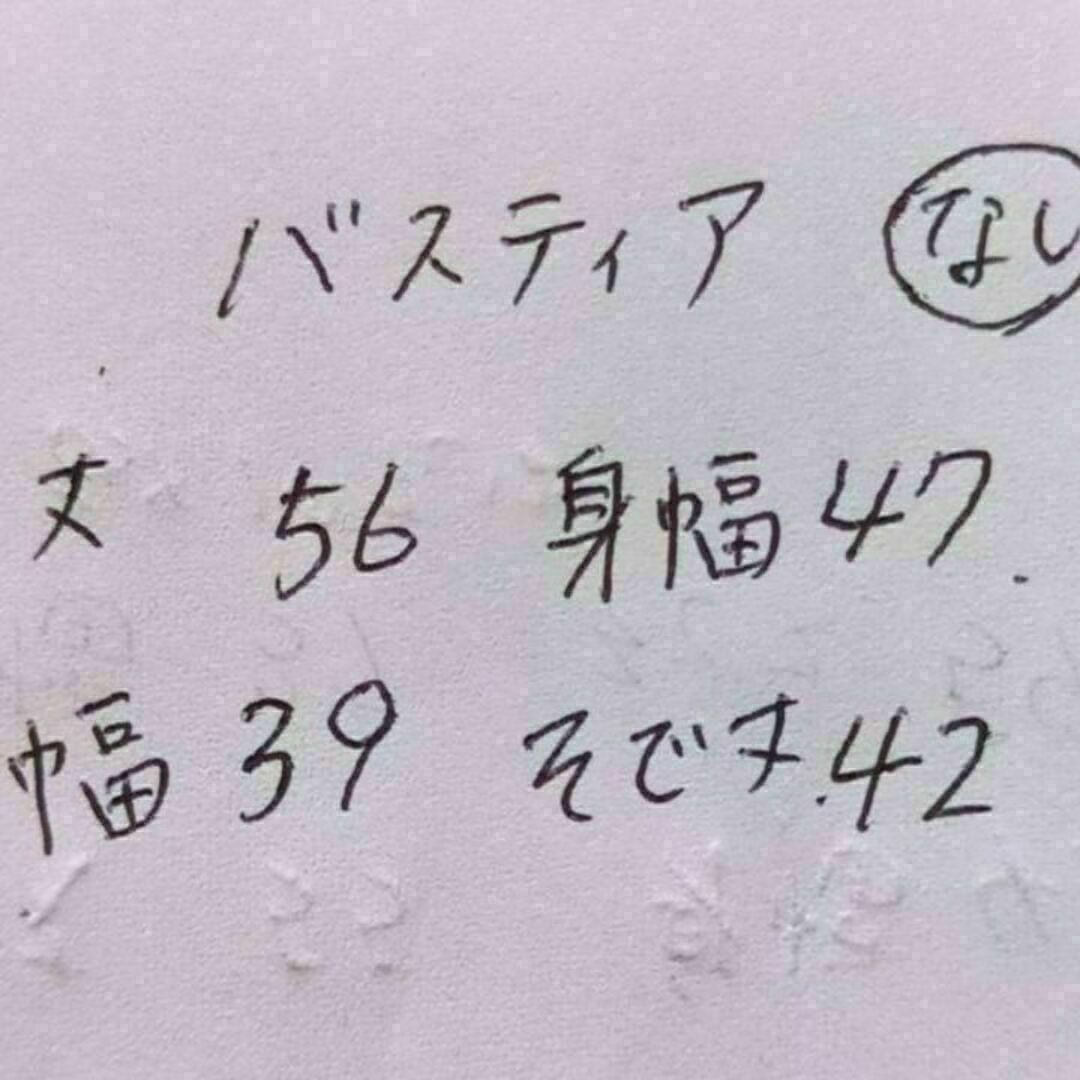 バスティア なし
丈 56 身幅 47.
幅 39 そで丈.42